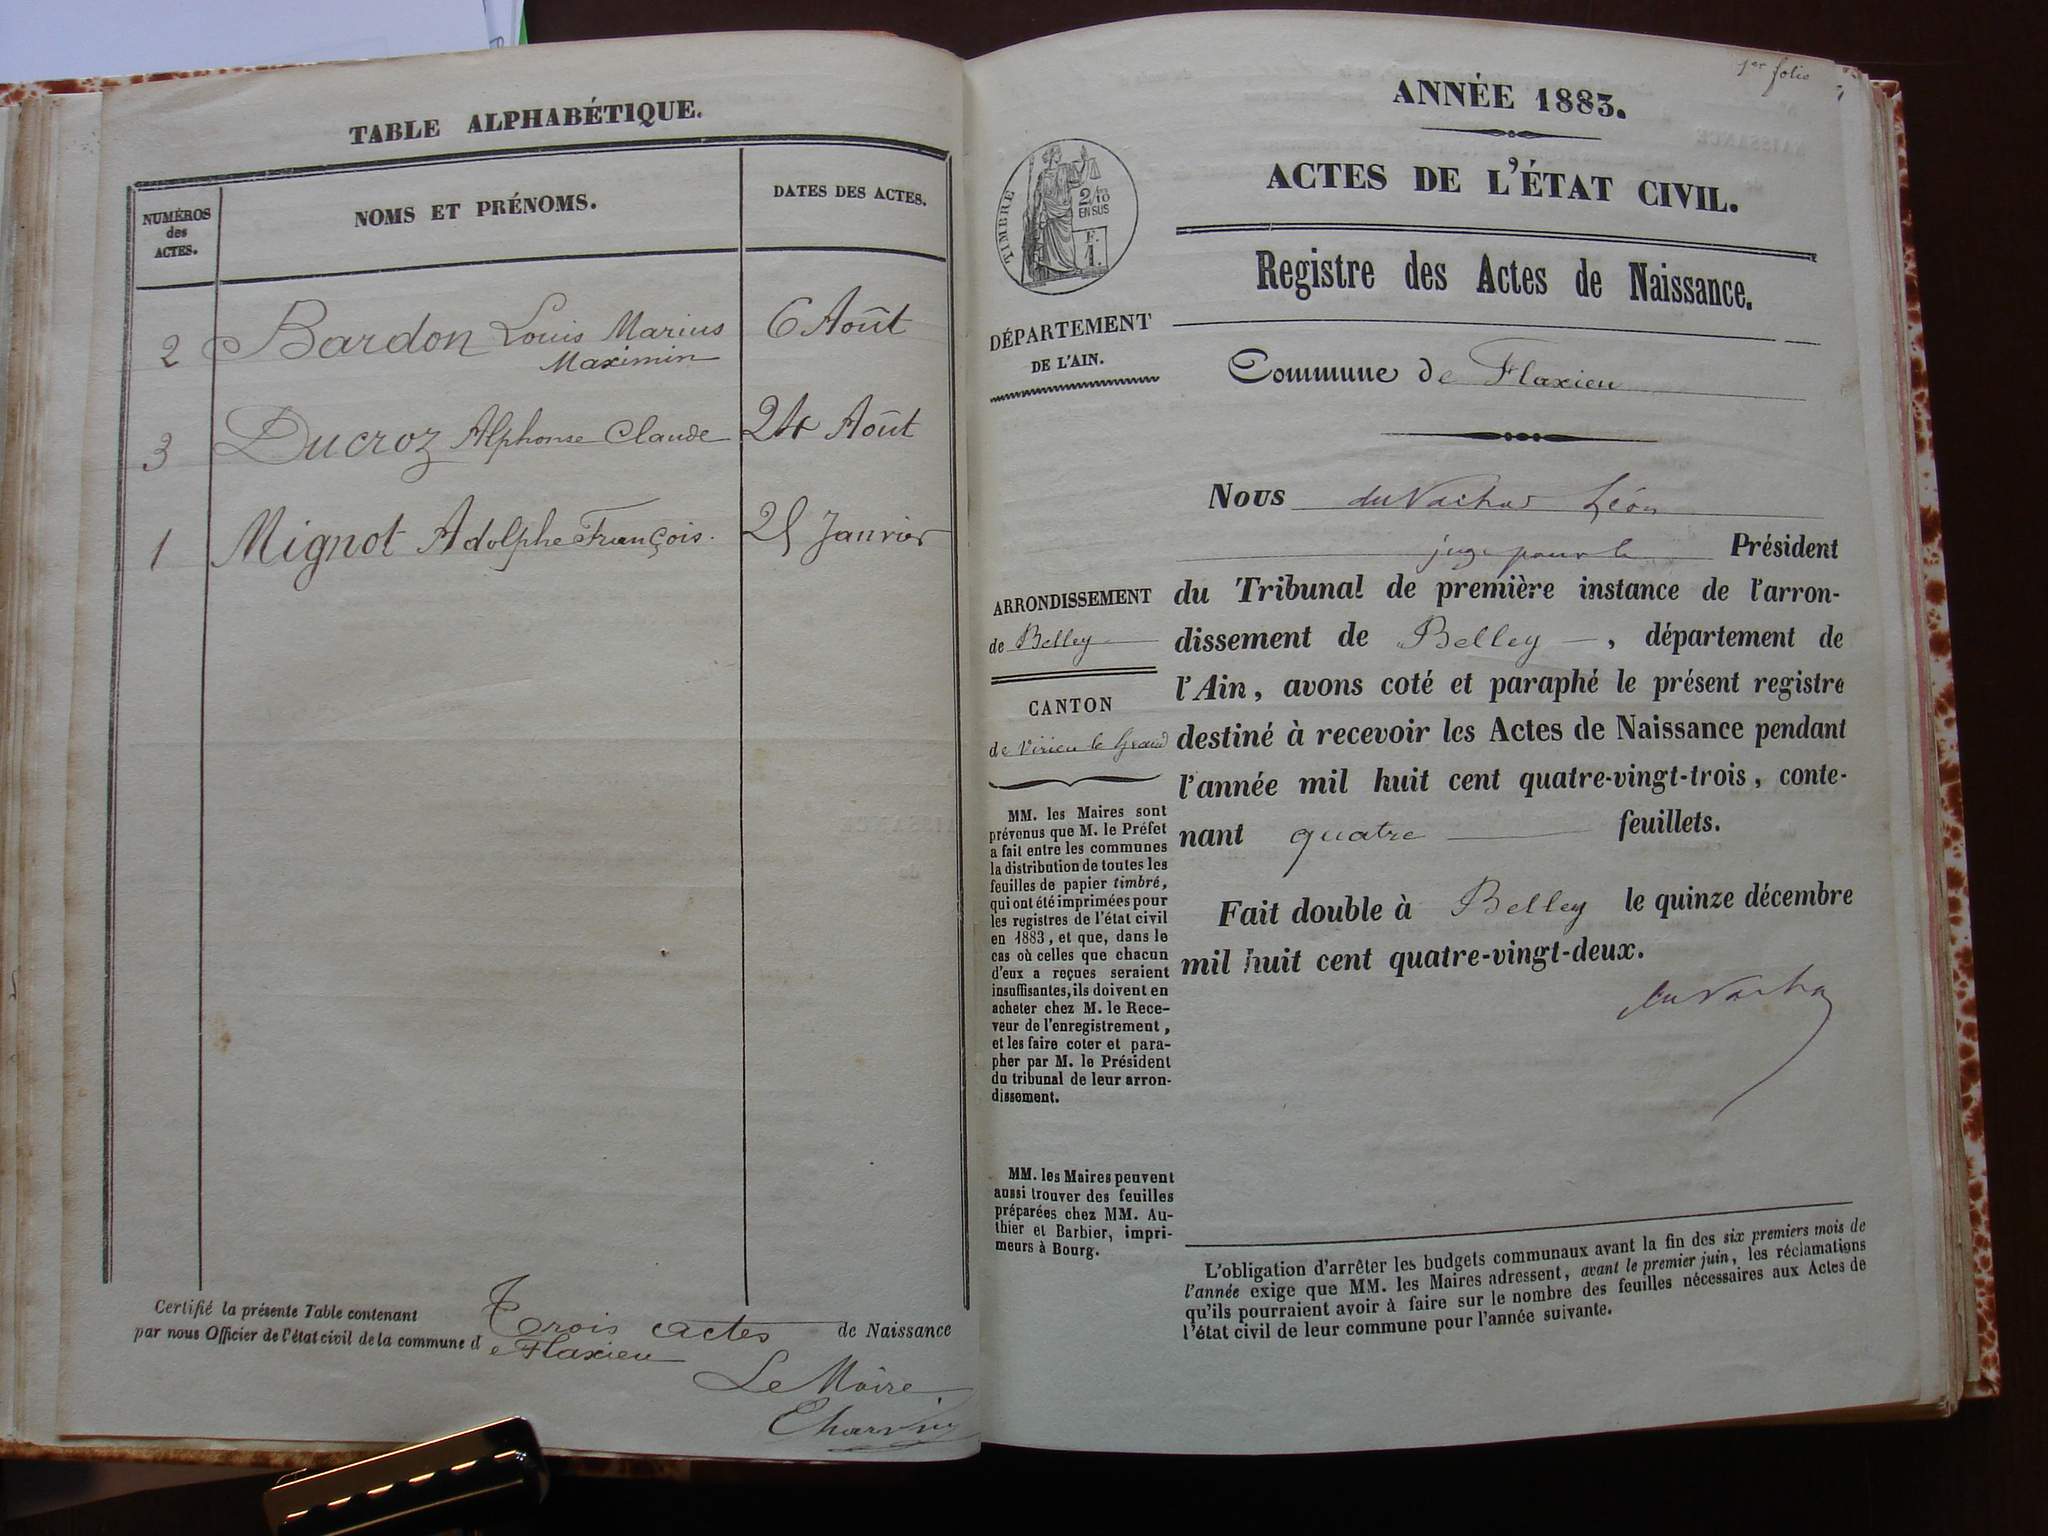 TABLE ALPHABÉTIQUE.
NUMÉROS
des
ACTES.
NOMS ET PRÉNOMS.
DATES DES ACTES.
2 Bardon Louis Marius 6 Août
Maximin
3 Ducroz Alphonse Claude 24 Août
1 Mignot Adolphe François. 25 Janvier
Certifié la présente Table contenant Trois actes de Naissance
par nous Officier de l'état civil de la commune de Flaxieu
Le Maire
1er folio
ANNÉE 1883.
ACTES DE L'ÉTAT CIVIL.
TIMBRE
2/10
EN SUS
F.
1.
Registre des Actes de Naissance.
DÉPARTEMENT
DE L'AIN.
Commune de Flaxieu
ARRONDISSEMENT
de Belley
CANTON
de Virieu le Grand
MM. les Maires sont
prévenus que M. le Préfet
a fait entre les communes
la distribution de toutes les
feuilles de papier timbré,
qui ont été imprimées pour
les registres de l'état civil
en 1883, et que, dans le
cas où celles que chacun
d'eux a reçues seraient
insuffisantes, ils doivent en
acheter chez M. le Rece-
veur de l'enregistrement,
et les faire coter et para-
pher par M. le Président
du tribunal de leur arron-
dissement.
MM. les Maires peuvent
aussi trouver des feuilles
préparées chez MM. Au-
thier et Barbier, impri-
meurs à Bourg.
Nous Léon
juge pour le Président
du Tribunal de première instance de l'arron-
dissement de Belley, département de
l'Ain, avons coté et paraphé le présent registre
destiné à recevoir les Actes de Naissance pendant
l'année mil huit cent quatre-vingt-trois, conte-
nant quatre feuillets.
Fait double à Belley le quinze décembre
mil huit cent quatre-vingt-deux.
L'obligation d'arrêter les budgets communaux avant la fin des six premiers mois de
l'année exige que MM. les Maires adressent, avant le premier juin, les réclamations
qu'ils pourraient avoir à faire sur le nombre des feuilles nécessaires aux Actes de
l'état civil de leur commune pour l'année suivante.